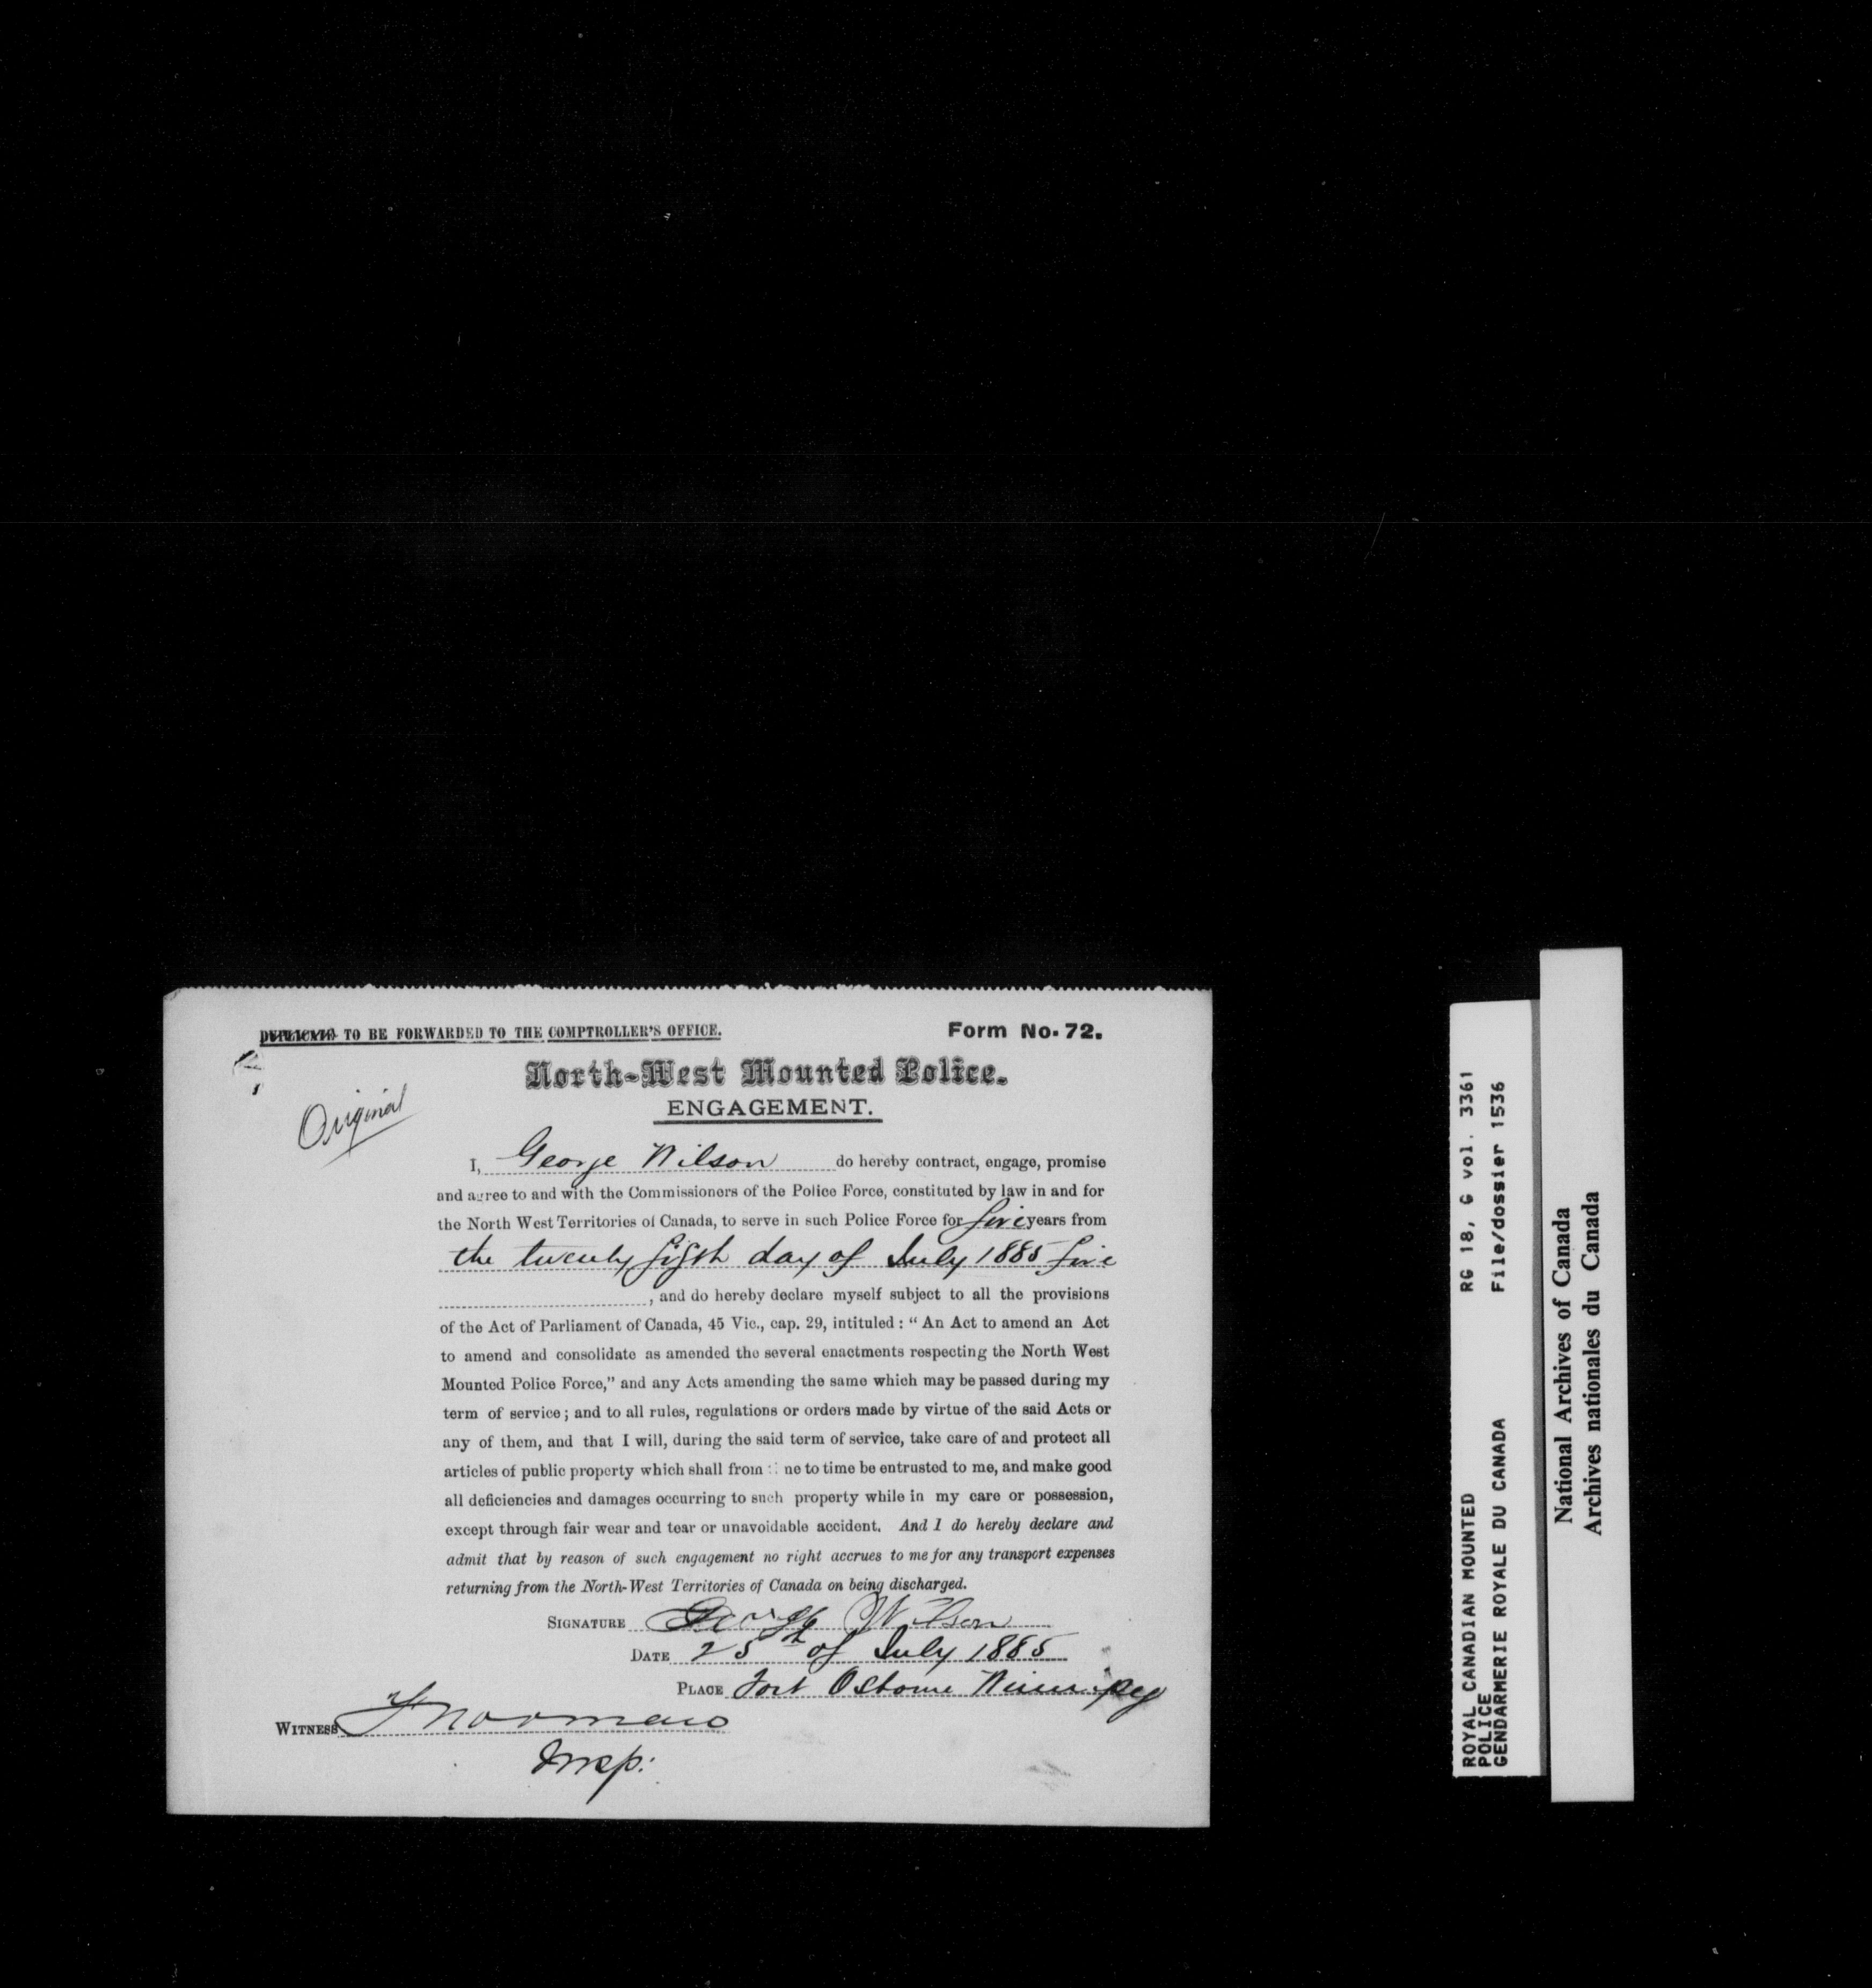 DUPLICATE TO BE FORWARDED TO THE COMPTROLLER'S OFFICE.
Form No. 72.
North-West Mounted Police.
ENGAGEMENT.
Original
I, George Wilson do hereby contract, engage, promise
and agree to and with the Commissioners of the Police Force, constituted by law in and for
the North West Territories of Canada, to serve in such Police Force for five years from
the twenty fifth day of July 1885 five
, and do hereby declare myself subject to all the provisions
of the Act of Parliament of Canada, 45 Vic., cap. 29, intituled : " An Act to amend an Act
to amend and consolidate as amended the several enactments respecting the North West
Mounted Police Force," and any Acts amending the same which may be passed during my
term of service ; and to all rules, regulations or orders made by virtue of the said Acts or
any of them, and that I will, during the said term of service, take care of and protect all
articles of public property which shall from time to time be entrusted to me, and make good
all deficiencies and damages occurring to such property while in my care or possession,
except through fair wear and tear or unavoidable accident. And I do hereby declare and
admit that by reason of such engagement no right accrues to me for any transport expenses
returning from the North-West Territories of Canada on being discharged.
SIGNATURE George Wilson
DATE 25th of July 1885
PLACE Fort Osborne Winnipeg
WITNESS Norman
Insp.
ROYAL CANADIAN MOUNTED RG 18, G vol. 3361
POLICE
GENDARMERIE ROYALE DU CANADA File/dossier 1536
National Archives of Canada
Archives nationales du Canada